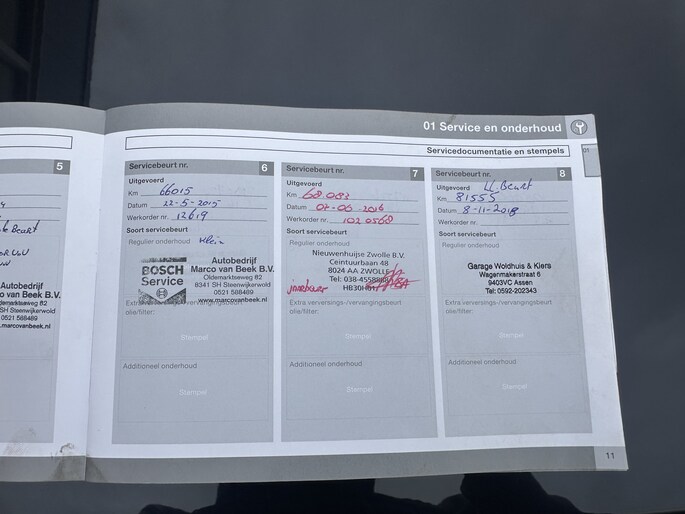 01 Service en onderhoud
Servicedocumentatie en stempels
01
5
Beurt
Autobedrijf
van Beek B.V.
Oldemarktseweg 82
SH Steenwijkerwold
0521 588489
.marcovanbeek.nl
Servicebeurt nr. 6
Uitgevoerd
Km 66015
Datum 22-5-2015
Werkorder nr. 12619
Soort servicebeurt
Regulier onderhoud Klein
BOSCH
Service
Autobedrijf
Marco van Beek B.V.
Oldemarktseweg 82
8341 SH Steenwijkerwold
0521 588489
www.marcovanbeek.nl
Extra verversings-/vervangingsbeurt
olie/filter:
Stempel
Additioneel onderhoud
Stempel
Servicebeurt nr. 7
Uitgevoerd
Km 68.083
Datum 07-06-2016
Werkorder nr. 1020568
Soort servicebeurt
Regulier onderhoud
Nieuwenhuijse Zwolle B.V.
Ceintuurbaan 48
8024 AA ZWOLLE
Tel: 038-4558
Extra verversings-/vervangingsbeurt
olie/filter:
Stempel
Additioneel onderhoud
Stempel
Servicebeurt nr. 8
Uitgevoerd Kl. Beurt
Km 81555
Datum 8-11-2018
Werkorder nr.
Soort servicebeurt
Regulier onderhoud
Garage Woldhuis & Kiers
Wagenmakerstraat 6
9403VC Assen
Tel: 0592-202343
Extra verversings-/vervangingsbeurt
olie/filter:
Stempel
Additioneel onderhoud
Stempel
11